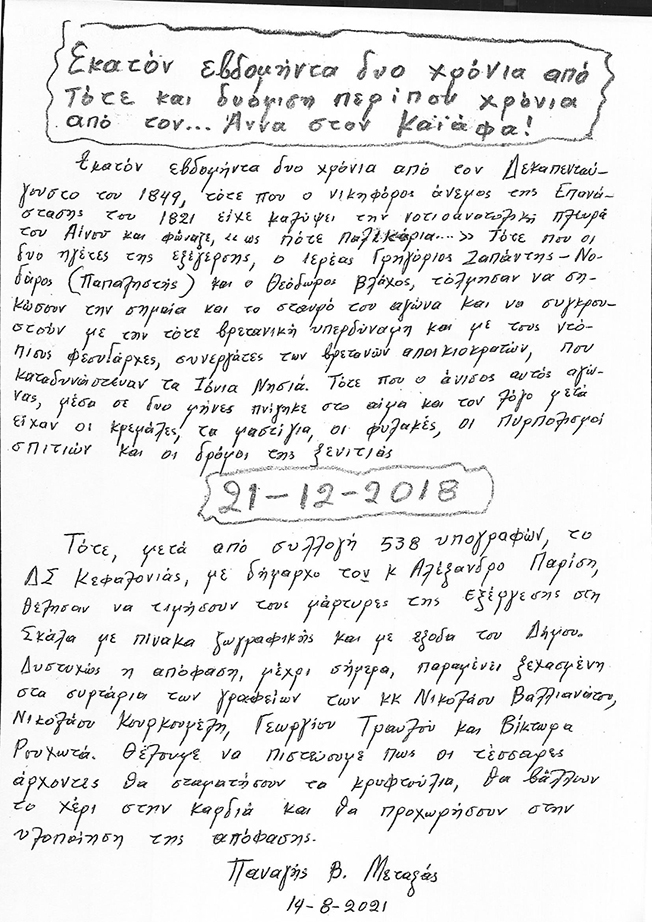 Εκατόν εβδομήντα δυο χρόνια από
Τότε και δυόμιση περίπου χρόνια
από τον... Άννα στον Καϊάφα!
Εκατόν εβδομήντα δυο χρόνια από τον Δεκαπενταύ-
γουστο του 1849, τότε που ο νικηφόρος άνεμος της Επανά-
στασης του 1821 είχε καλύψει την νοτιοανατολική πλευρά
του Αίνου και φώναζε, «ως πότε παλικάρια...» Τότε που οι
δυο ηγέτες της εξέγερσης, ο Ιερέας Γρηγόριος Ζαπάντης-Νο-
δάρος (Παπαληστής) και ο Θεόδωρος Βλάχος, τόλμησαν να ση-
κώσουν την σημαία και το σταυρό του αγώνα και να συγκρου-
στούν με την τότε βρετανική υπερδύναμη και με τους ντό-
πιους φεουδάρχες, συνεργάτες των βρετανών αποικιοκρατών, που
καταδυνάστευαν τα Ιόνια Νησιά. Τότε που ο άνισος αυτός αγώ-
νας, μέσα σε δυο μήνες πνίγηκε στο αίμα και τον λόγο μετά
είχαν οι κρεμάλες, τα μαστίγια, οι φυλακές, οι πυρπολισμοί
σπιτιών και οι δρόμοι της ξενιτιάς
21-12-2018
Τότε, μετά από συλλογή 538 υπογραφών, το
ΔΣ Κεφαλονιάς, με δήμαρχο τον κ Αλέξανδρο Παρίση,
θέλησαν να τιμήσουν τους μάρτυρες της εξέργεσης στη
Σκάλα με πίνακα ζωγραφικής και με έξοδα του Δήμου.
Δυστυχώς η απόφαση, μέχρι σήμερα, παραμένει ξεχασμένη
στα συρτάρια των γραφείων των κκ Νικολάου Βαλλιανάτου,
Νικολάου Κουρκουμέλη, Γεωργίου Τραυλού και Βίκτωρα
Ρουχωτά. Θέλουμε να πιστεύουμε πως οι τέσσαρες
άρχοντες θα σταματήσουν το κρυφτούλια, θα βάλλουν
το χέρι στην καρδιά και θα προχωρήσουν στην
υλοποίηση της απόφασης.
Παναγής Β. Μεταξάς
14-8-2021